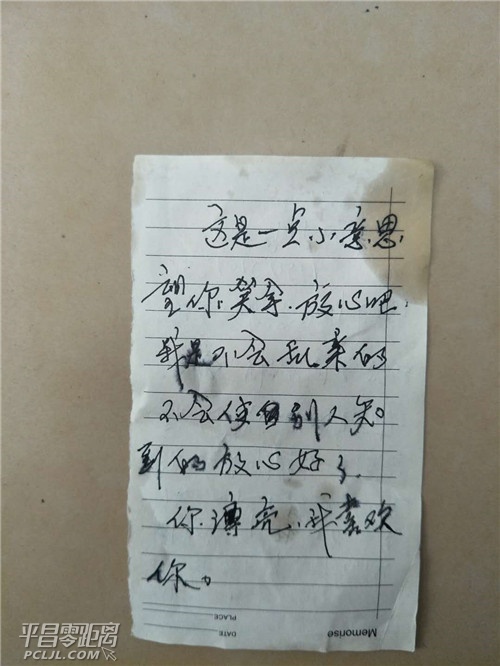 这是一点小意思.
望你笑拿.放心吧.
我是不会乱来的
不会使别人知
到的放心好了.
你漂亮.我喜欢
你。
Memorise
DATE
PLACE
平昌零距离
PCLJL.COM